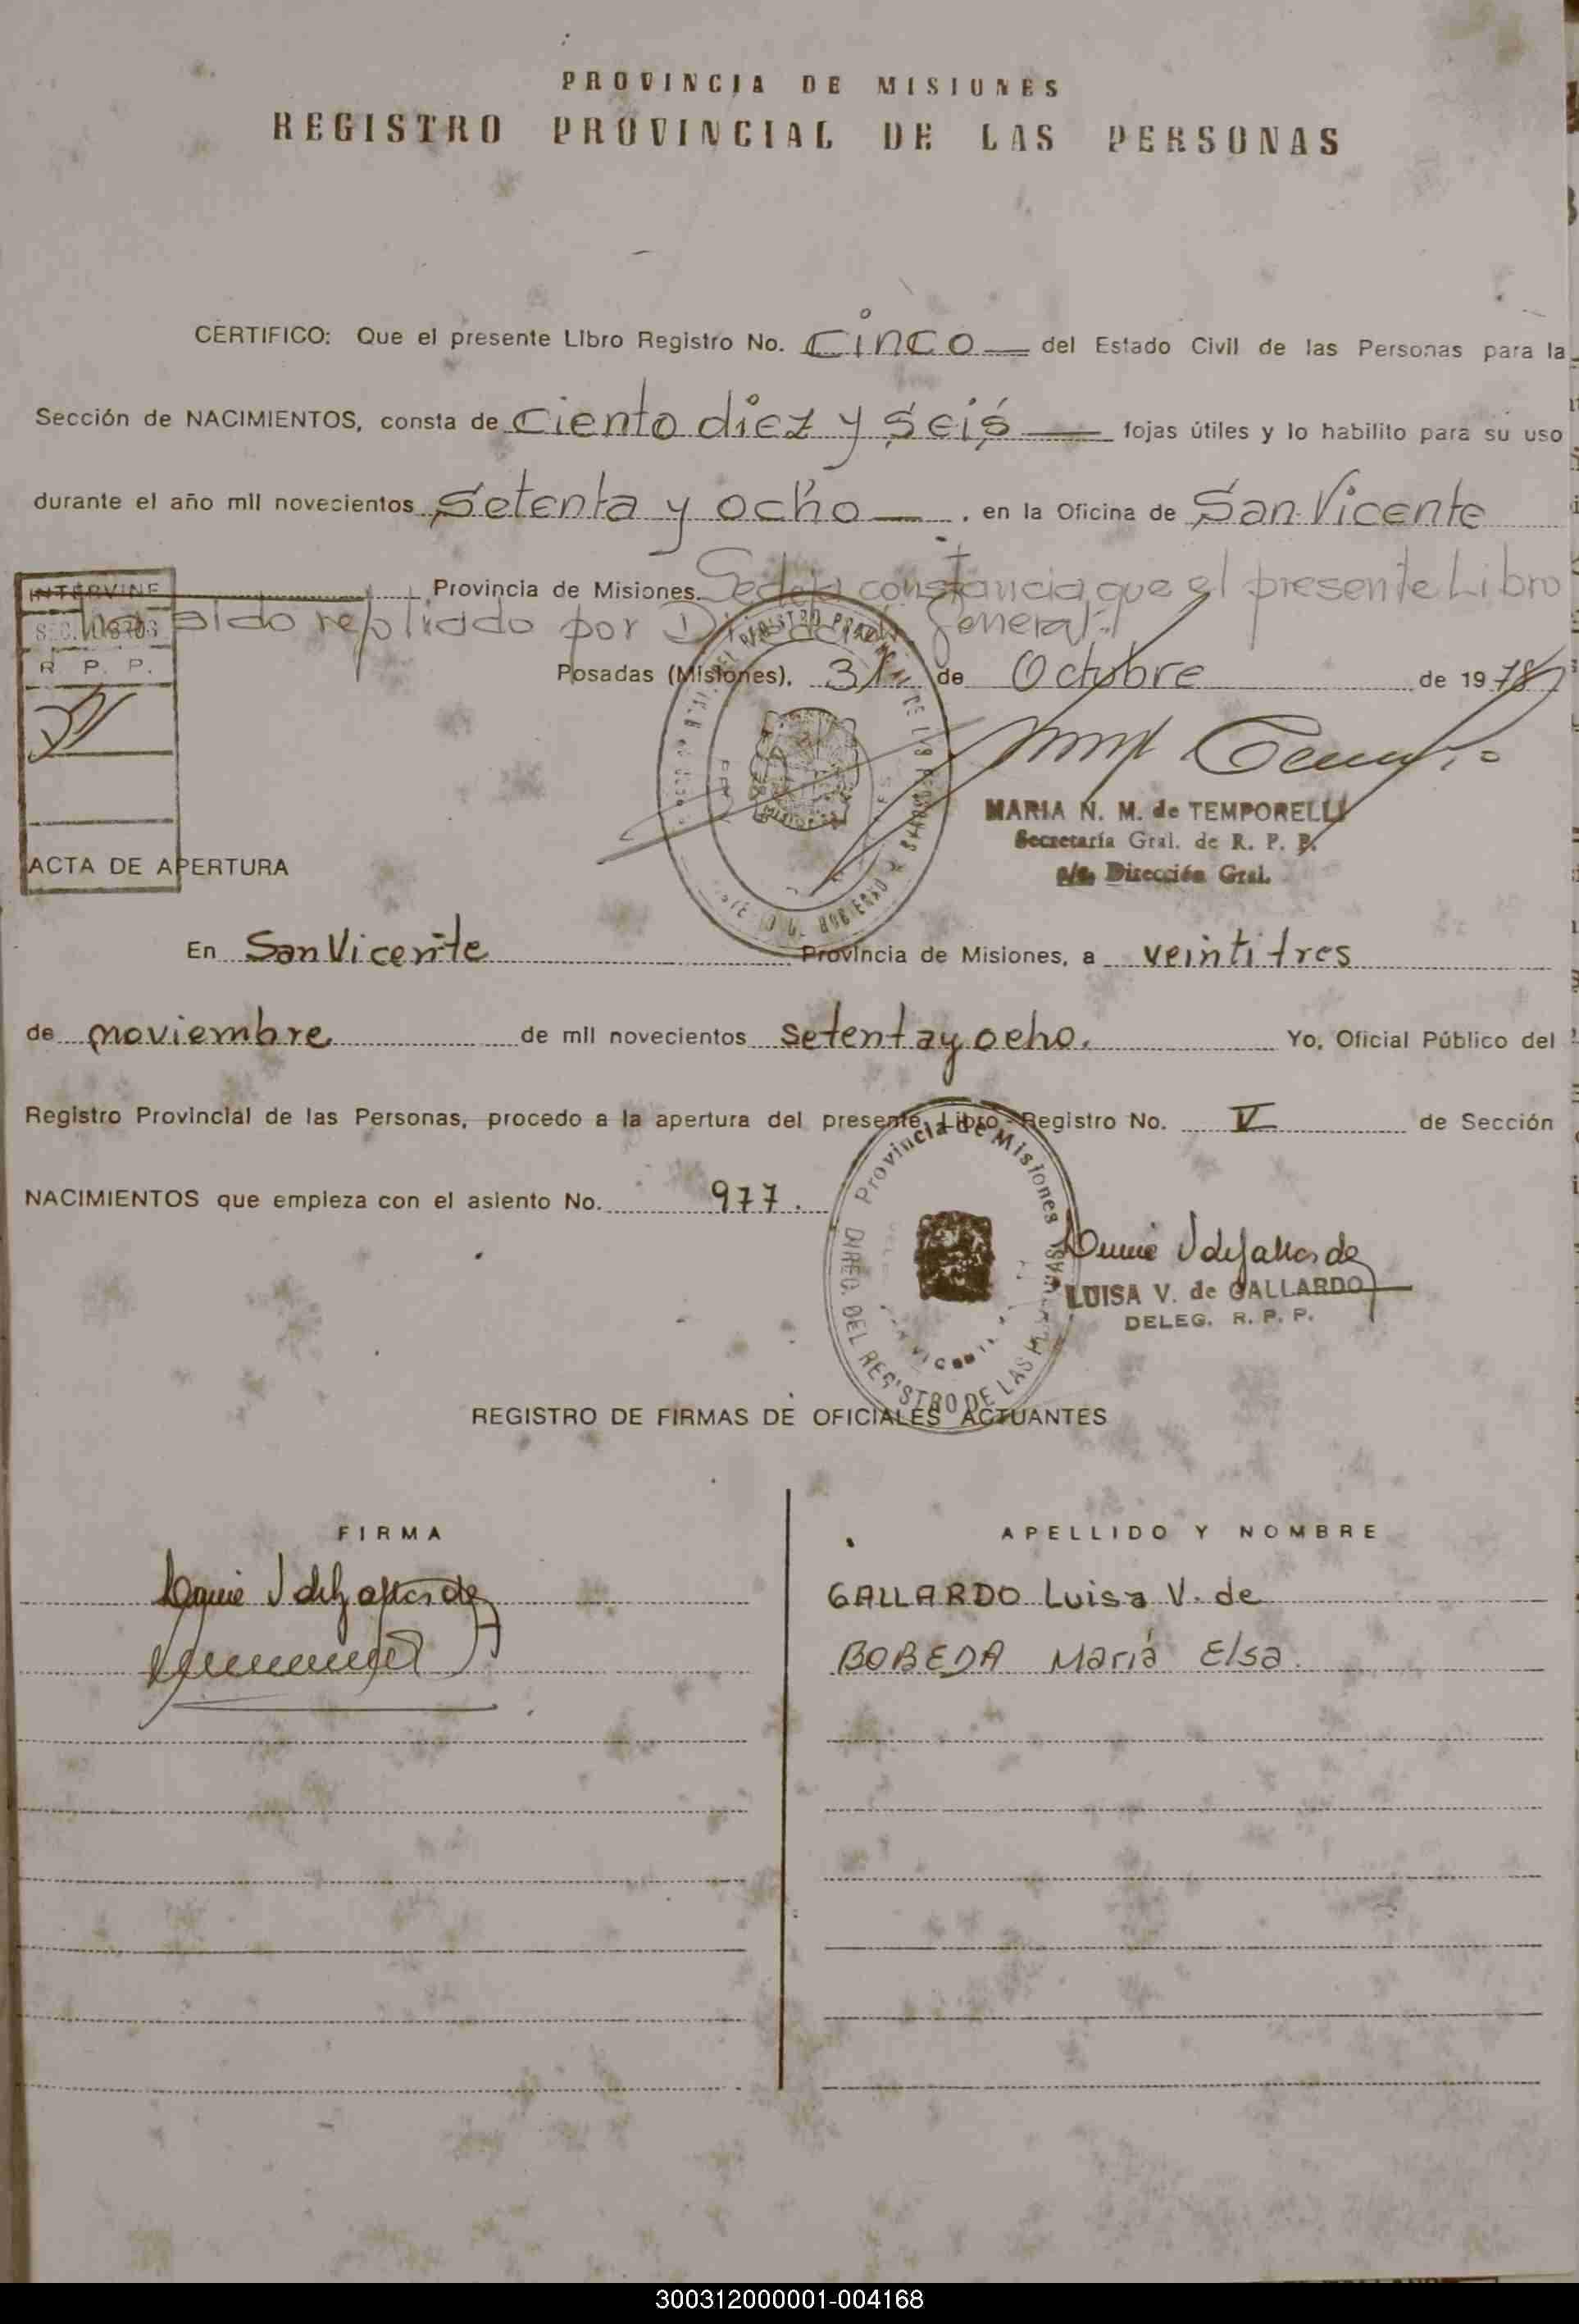 PROVINCIA DE MISIONES
REGISTRO PROVINCIAL DE LAS PERSONAS
CERTIFICO: Que el presente Libro Registro No. cinco — del Estado Civil de las Personas para la
Sección de NACIMIENTOS, consta de ciento diez y seis — fojas útiles y lo habilito para su uso
durante el año mil novecientos setenta y ocho — , en la Oficina de San Vicente
Provincia de Misiones. Se deja constancia que el presente Libro
ha sido refoliado por Dirección General.
INTERVINE
SEC. LIBROS
R. P. P.
Posadas (Misiones), 31 de Octubre de 1978
MARIA N. M. de TEMPORELLI
Secretaría Gral. de R. P. P.
a/c. Dirección Gral.
ACTA DE APERTURA
En San Vicente Provincia de Misiones, a veintitres
de noviembre de mil novecientos setenta y ocho. Yo, Oficial Público del
Registro Provincial de las Personas, procedo a la apertura del presente Libro Registro No. V de Sección
NACIMIENTOS que empieza con el asiento No. 977.
Provincia de Misiones
DIREC. DEL REGISTRO DE LAS
LUISA V. de GALLARDO
DELEG. R. P. P.
REGISTRO DE FIRMAS DE OFICIALES ACTUANTES
FIRMA APELLIDO Y NOMBRE
GALLARDO Luisa V. de
BOBEDA María Elsa.
300312000001-004168